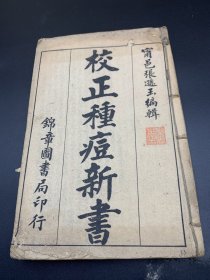 甯邑張遜玉編輯
校正種痘新書
錦章圖書局印行